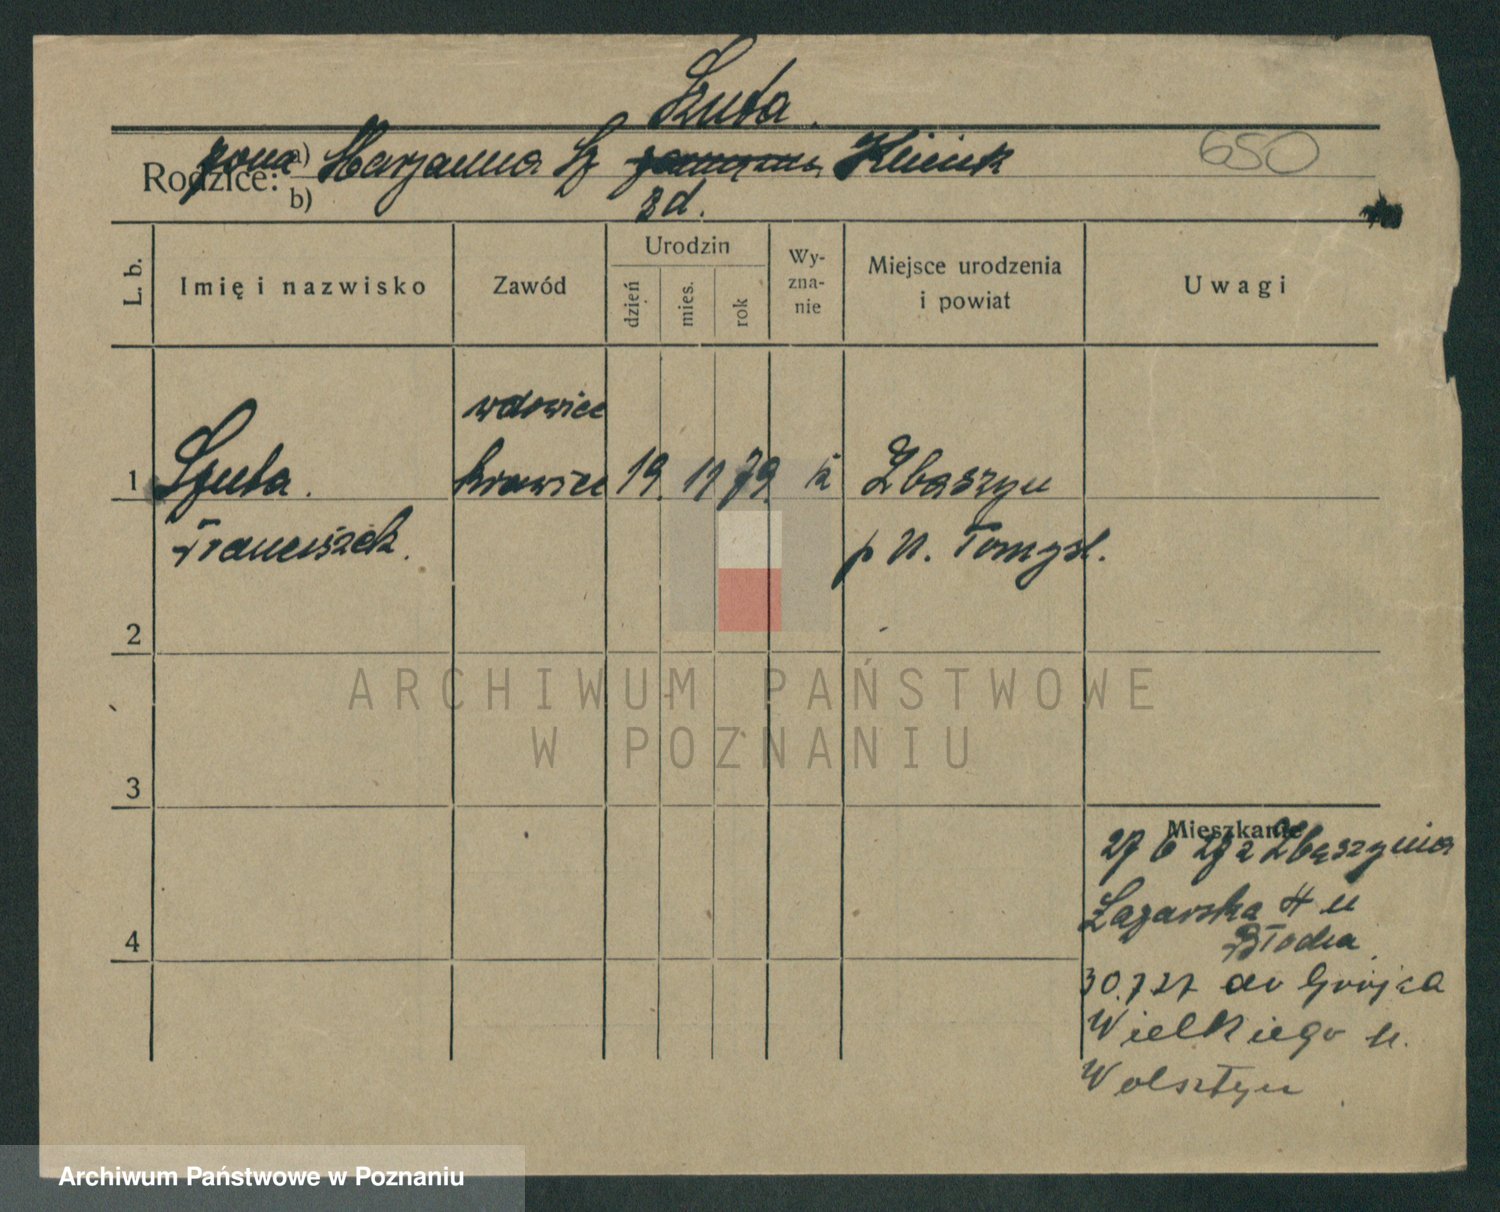 Szuta.
Rodzice: żona a) Marjanna Sz Klimek
650
b) zd.
L. b.
Imię i nazwisko
Zawód
Urodzin
dzień
mies.
rok
Wy-
zna-
nie
Miejsce urodzenia
i powiat
Uwagi
wdowiec
1 Szuta. krawiec 19. 11 79. k Zbąszyn
Franciszek. p N. Tomyśl.
2
3
4
Mieszkanie
27 6 27 z Zbąszynia
Łazarska u
30.7 27 do Grójca
Wielkiego u.
Wolsztyn
ARCHIWUM PAŃSTWOWE
W POZNANIU
Archiwum Państwowe w Poznaniu